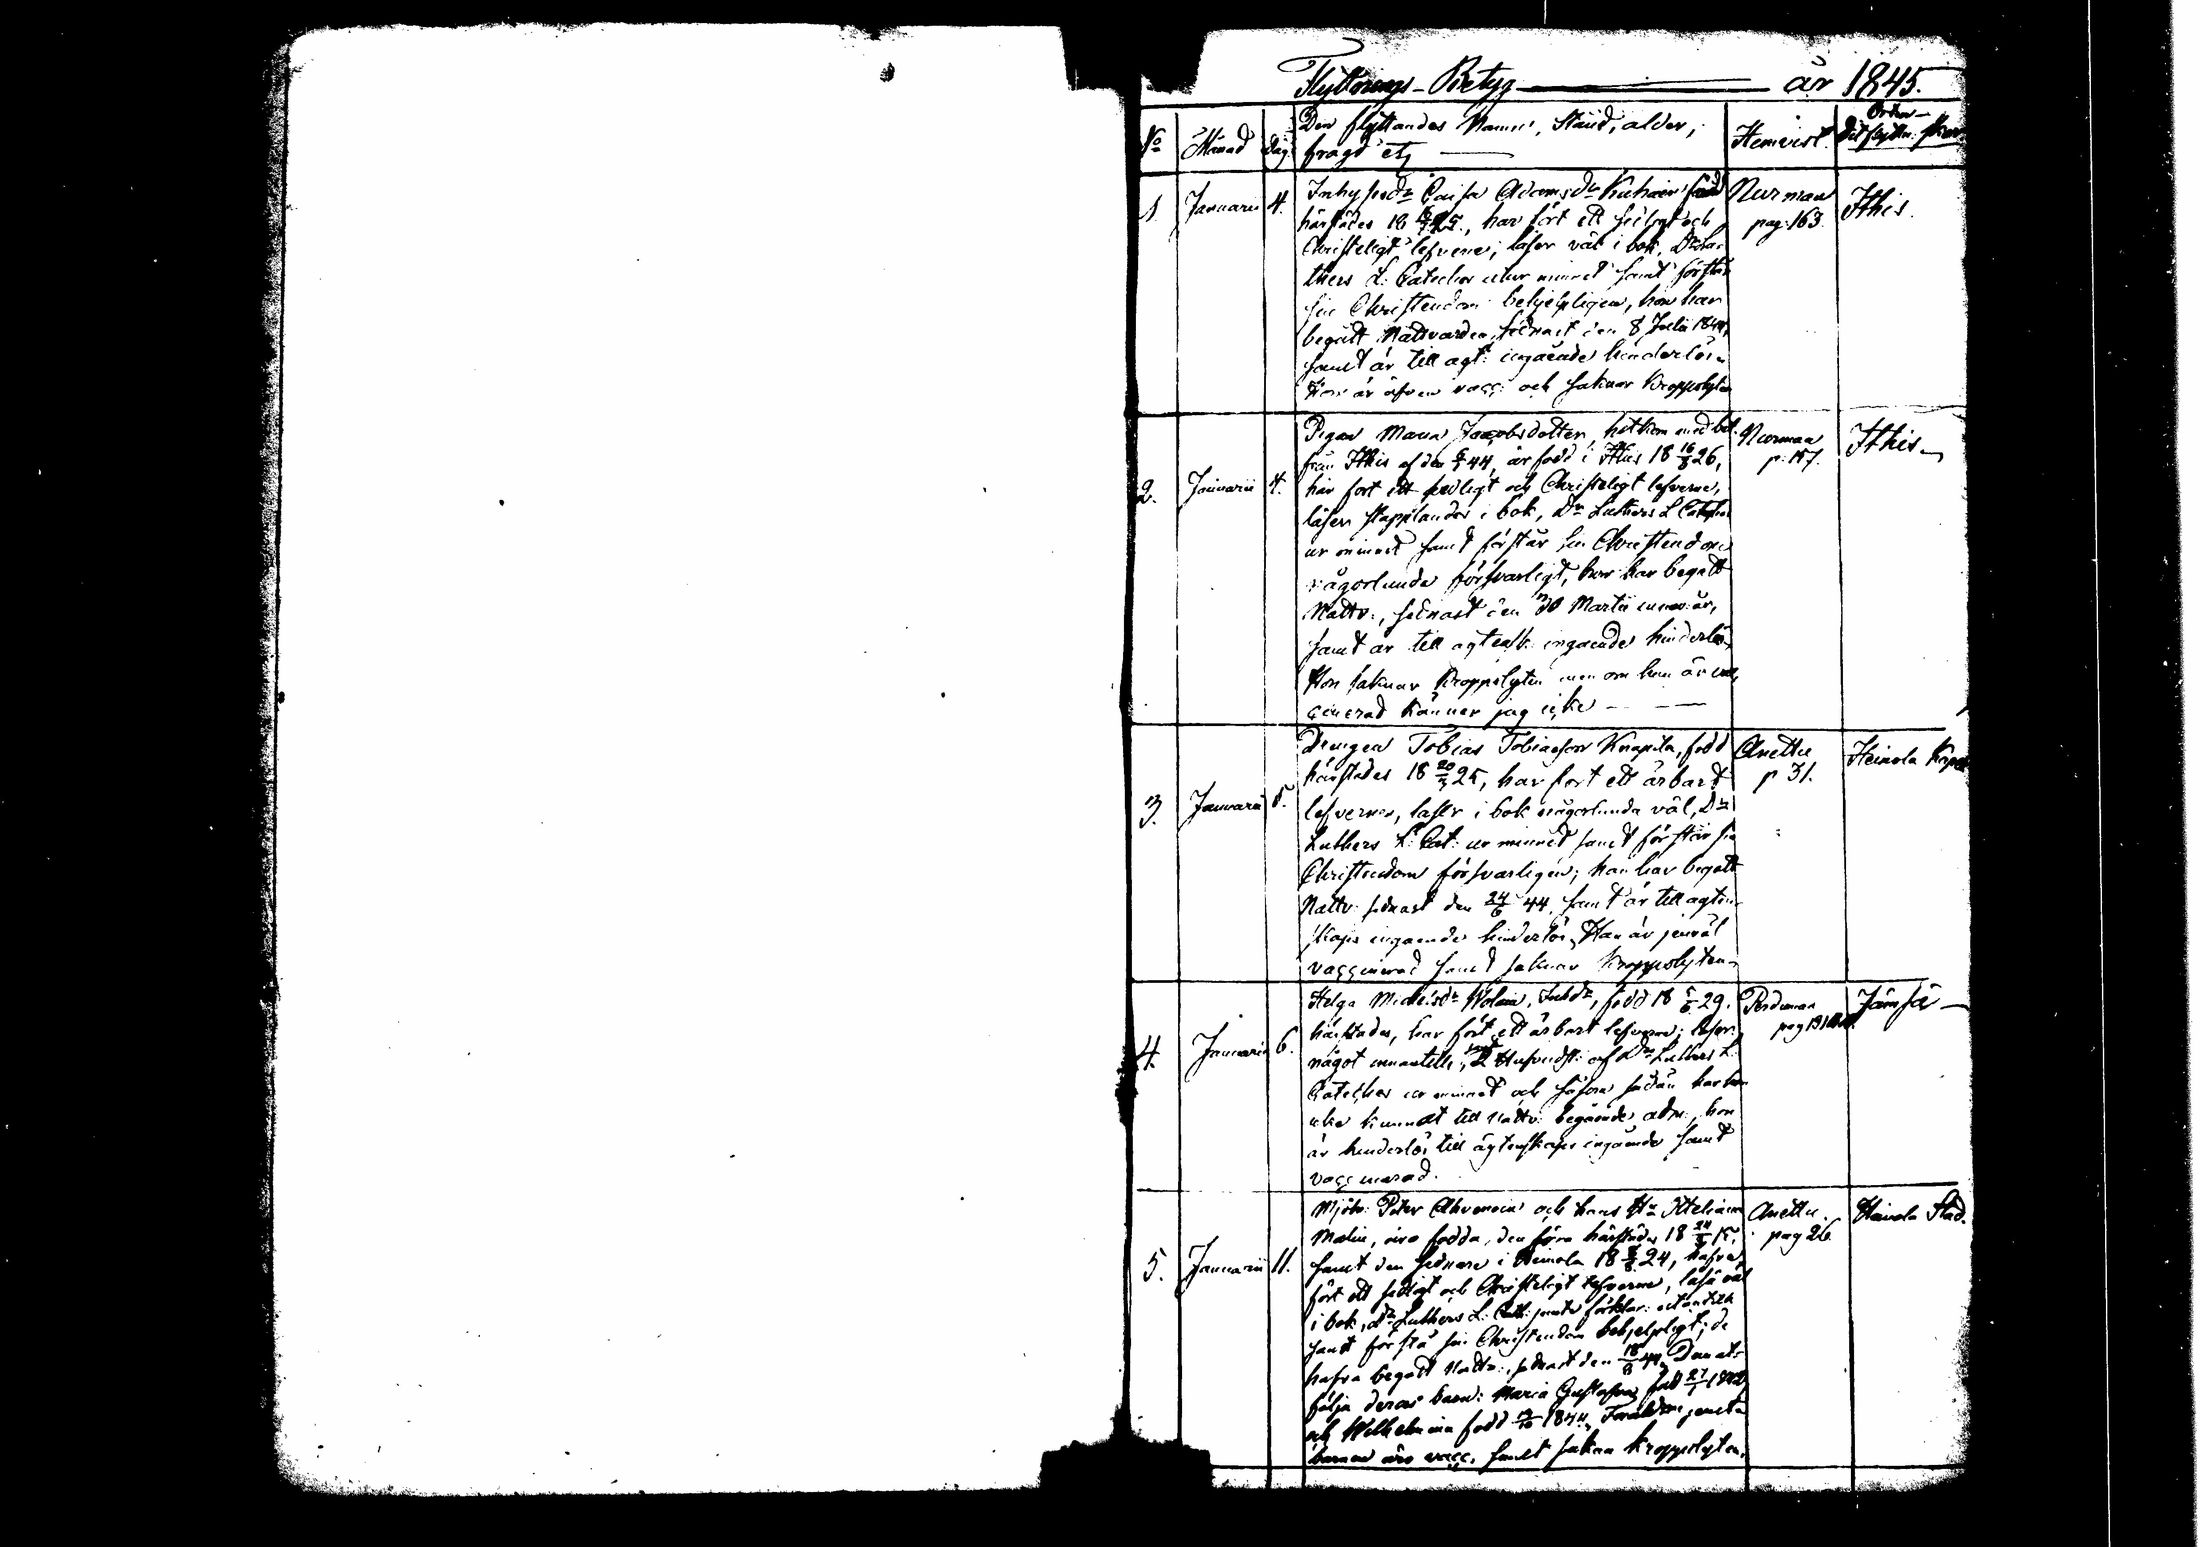 Flyttnings-Betyg år 1845.
No Månad Dag Den flyttandes Namn, Stånd, alder, Hemvist. Orten
frägd etc dit flyttn:
1. Januarii 4. Inhysesdr Caisa Adamsdr född Nurmaa Ithis.
härstädes 18 25, har fört ett sedligt och pag. 163.
Christeligt lefverne, läser väl i bok, Dr Lu-
thers L: Cateches utur minnet samt förstår
sin Christendom behjelpligen, hon har
begått Nattvarden sednast den 8 Julii 1844,
samt är till ägt: ingående hinderlös.
Hon är äfven vacc: och saknar Kroppslyten
2. Januarii 4. Pigan Maria Jacobsdotter, hitkom med bet. Nurmaa Ithis
från Ithis af den 44, är född i Ithis 18 16/8 26, p. 157.
har fört ett sedligt och Christeligt lefverne,
läser stapplandes i bok, Drs Luthers L Cateches
ur minnet samt förstår sin Christendom
någorlunda försvarligt, hon har begått
Nattv:, sednast den 30 Martii år,
samt är till ägtensk: ingående hinderlös,
Hon saknar Kroppslyten men om hon är vac-
cinerad känner jag icke
3. Januarii 5. Drengen Tobias Tobiasson Knapila, född Anettu Heinola Kapell
härstädes 18 20/3 25, har fört ett ärbart p 31.
lefverne, läser i bok någorlunda väl, Drs
Luthers L: Cat: ur minnet samt förstår sin
Christendom försvarligen; han har begått
Nattv: sednast den 24/6 44, samt är till ägten-
skaps ingående hinderlös, Han är jemväl
vaccinerad samt saknar Kroppslyten
4. Januarii 6. Helga Michelsdr född 18 29. Jämsä
härstädes, har fört ett ärbart lefverne; läser pag 191
något innantill, Hufvudst: af Drs Luthers L:
Cateches ur minnet och såsom sådan har hon
icke kunnat till Nattv: begående adm:, hon
är hinderlös till ägtenskaps ingående samt
vaccinerad.
5. Januarii 11. Mjöln: Peter Ahvenain och hans Hu Anettu. Heinola Stad.
Malin, äro födda, den förra härstädes 18 24 15, pag 26
samt den sednare i Heinola 18 24, hafva
fört ett sedligt och Christeligt lefverne, läsa väl
i bok, Drs Luthers L: Cat: jemte förklar: utantill
samt förstå sin Christendom behjelpligt; de
hafva begått Nattv:, sednast den 18/8 44, Dem åt-
följa deras barn: Maria Gustafva född 27/1 1842
och Wilhelmina född 1844, Föräldrar jemte
barnen äro vacc. samt sakna kroppslyten.